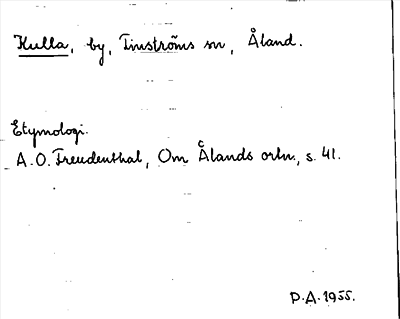 Kulla, by, Finströms sn, Åland.
Etymologi.
A.O. Freudenthal, Om Ålands ortn, s. 41.
P.A. 1955.